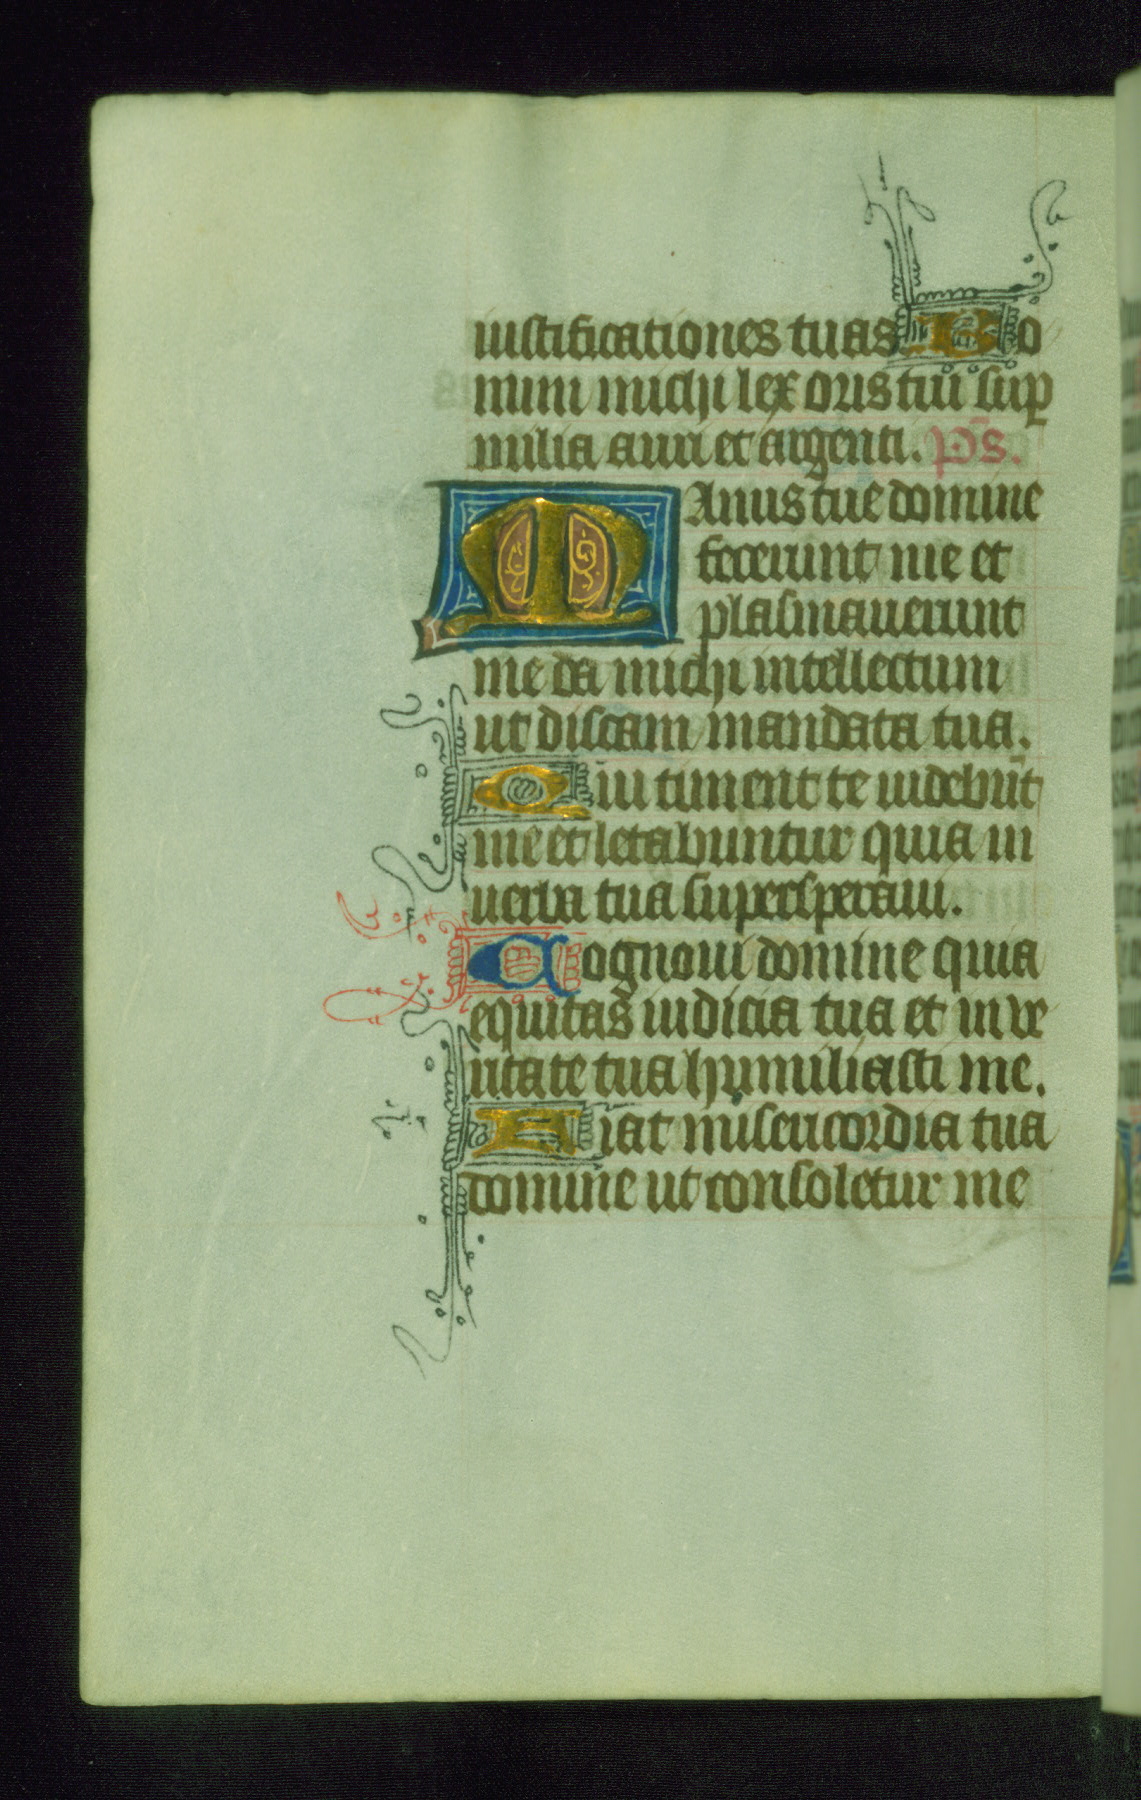 iustificationes tuas Bo
num michi lex oris tui sup
milia auri et argenti. Ps.
Manus tue domine
fecerunt me et
plasmauerunt
me da michi intellectum
ut discam mandata tua.
Qui timent te uidebūt
me et letabuntur quia in
uerba tua supersperaui.
Cognoui domine quia
equitas iudicia tua et in ve
ritate tua humiliasti me.
Fiat misericordia tua
domine ut consoletur me